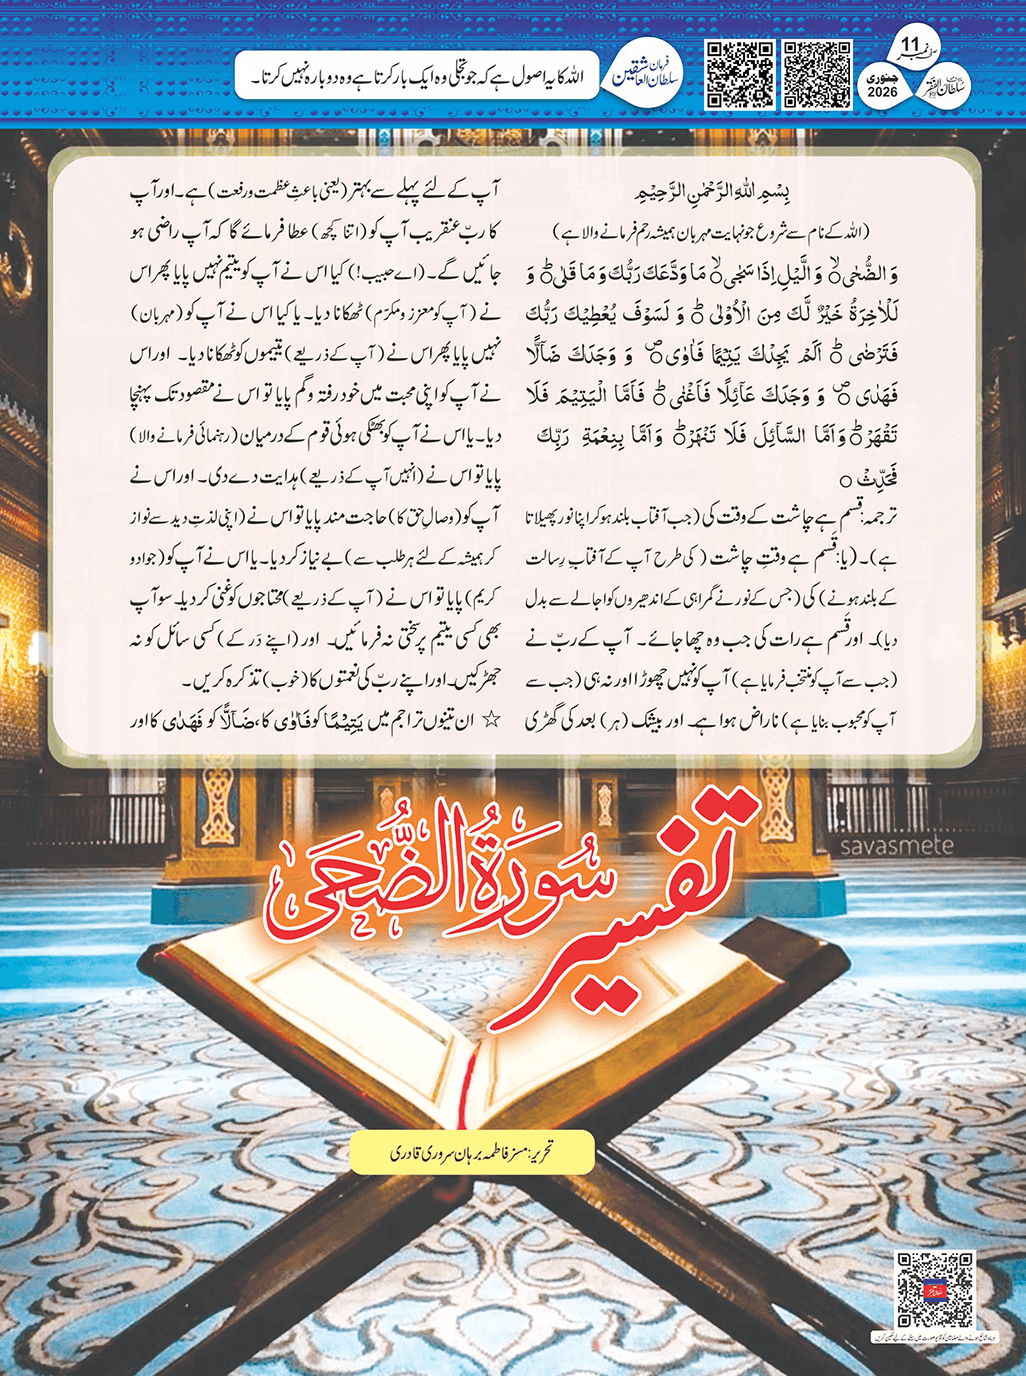 صفحہ نمبر 11
ماہنامہ سلطان الفقر لاہور
جنوری
2026
فرمان
سلطان العاشقین
اللہ کا یہ اصول ہے کہ جو تجلی وہ ایک بار کرتا ہے وہ دوبارہ نہیں کرتا۔
بِسْمِ اللّٰهِ الرَّحْمٰنِ الرَّحِيْمِ
(اللہ کے نام سے شروع جو نہایت مہربان ہمیشہ رحم فرمانے والا ہے)
وَ الضُّحٰی○ۙ وَ الَّیْلِ اِذَا سَجٰی○ۙ مَا وَدَّعَكَ رَبُّكَ وَ مَا قَلٰی○ؕ وَ
لَلْاٰخِرَةُ خَیْرٌ لَّكَ مِنَ الْاُوْلٰی○ؕ وَ لَسَوْفَ یُعْطِیْكَ رَبُّكَ
فَتَرْضٰی○ؕ اَلَمْ یَجِدْكَ یَتِیْمًا فَاٰوٰی○۪ وَ وَجَدَكَ ضَآلًّا
فَهَدٰی○۪ وَ وَجَدَكَ عَآئِلًا فَاَغْنٰی○ؕ فَاَمَّا الْیَتِیْمَ فَلَا
تَقْهَرْ○ؕ وَ اَمَّا السَّآئِلَ فَلَا تَنْهَرْ○ؕ وَ اَمَّا بِنِعْمَةِ رَبِّكَ
فَحَدِّثْ○
ترجمہ: قسم ہے چاشت کے وقت کی (جب آفتاب بلند ہو کر اپنا نور پھیلاتا
ہے)۔ (یا: قَسم ہے وقتِ چاشت (کی طرح آپ کے آفتابِ رِسالت
کے بلند ہونے) کی (جس کے نور نے گمراہی کے اندھیروں کو اجالے سے بدل
دیا)۔ اور قَسم ہے رات کی جب وہ چھا جائے۔ آپ کے ربّ نے
(جب سے آپ کو منتخب فرمایا ہے) آپ کو نہیں چھوڑا اور نہ ہی (جب سے
آپ کو محبوب بنایا ہے) ناراض ہوا ہے۔ اور بیشک (ہر) بعد کی گھڑی
آپ کے لئے پہلے سے بہتر (یعنی باعثِ عظمت و رفعت) ہے۔ اور آپ
کا ربّ عنقریب آپ کو (اتنا کچھ) عطا فرمائے گا کہ آپ راضی ہو
جائیں گے۔ (اے حبیب!) کیا اس نے آپ کو یتیم نہیں پایا پھر اس
نے (آپ کو معزز و مکرّم) ٹھکانا دیا۔ یا کیا اس نے آپ کو (مہربان)
نہیں پایا پھر اس نے (آپ کے ذریعے) یتیموں کو ٹھکانا دیا۔ اور اس
نے آپ کو اپنی محبت میں خود رفتہ و گم پایا تو اس نے مقصود تک پہنچا
دیا۔ یا اس نے آپ کو بھٹکی ہوئی قوم کے درمیان (رہنمائی فرمانے والا)
پایا تو اس نے (انہیں آپ کے ذریعے) ہدایت دے دی۔ اور اس نے
آپ کو (وصالِ حق کا) حاجت مند پایا تو اس نے (اپنی لذتِ دید سے نواز
کر ہمیشہ کے لئے ہر طلب سے) بے نیاز کر دیا۔ یا اس نے آپ کو (جواد و
کریم) پایا تو اس نے (آپ کے ذریعے) محتاجوں کو غنی کر دیا۔ سو آپ
بھی کسی یتیم پر سختی نہ فرمائیں۔ اور (اپنے دَر کے) کسی سائل کو نہ
جھڑکیں۔ اور اپنے ربّ کی نعمتوں کا (خوب) تذکرہ کریں۔
☆ ان تینوں تراجم میں یَتِیْمًا کو فَاٰوٰی کا، ضَآلًّا کو فَهَدٰی کا اور
savasmete
تفسیر سُورَةُ الضُّحَى
تحریر: مسز فاطمہ برہان سروری قادری